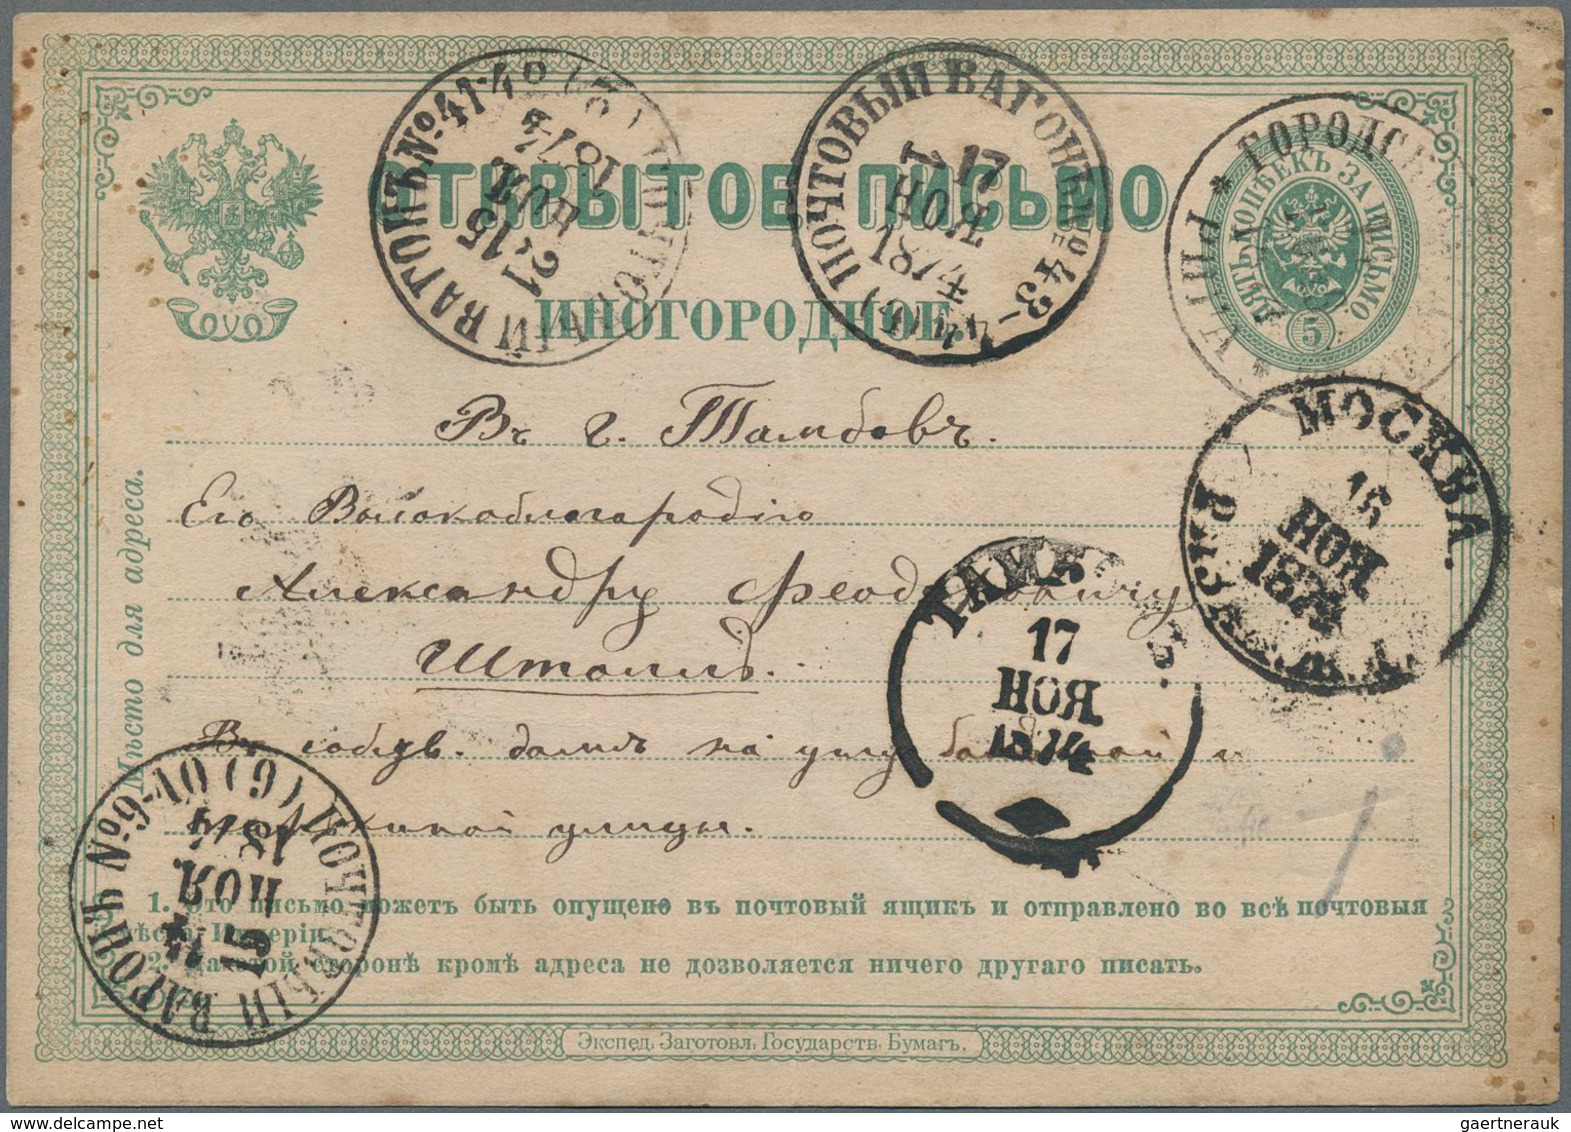 ОТКРЫТОЕ ПИСЬМО
ИНОГОРОДНОЕ.
ПЯТЬ КОПѢЕКЪ ЗА ПИСЬМО.
5
ВАГОНЪ № 41-42
21
15
НОЯ
1874
ПОЧТОВЫЙ ВАГОНЪ № 43-44
17
НОЯ
1874
ГОРОДСК
МОСКВА.
НОЯ
1874
Въ г. Тамбовъ.
Его Высокоблагородію
Александру Феодоровичу
Штоллъ.
Въ собств. домѣ на углу
улицы.
ТАМБОВЪ.
17
НОЯ
1874
ПОЧТОВЫЙ ВАГОНЪ № 9-10 (9)
15
НОЯ
1874
Мѣсто для адреса.
1. Это письмо можетъ быть опущено въ почтовый ящикъ и отправлено во всѣ почтовыя
мѣста Имперіи.
2. На этой сторонѣ кромѣ адреса не дозволяется ничего другаго писать.
Экспед. Заготовл. Государств. Бумагъ.
gaertnerauk @ delcampe.net